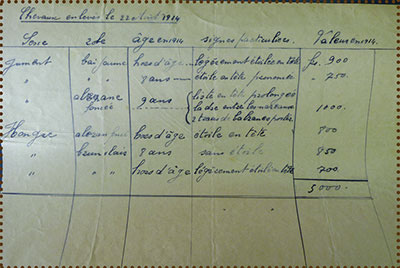 Chevaux enlevés le 22 août 1914
Sexe robe âge en 1914 signes particuliers. Valeur en 1914.
Jument bai jaune hors d'âge légèrement étoilée en tête frs. 900
" " 8 ans étoile en tête prononcée " 750.
" alezane foncée 9 ans liste en tête prolongée
ladre entre les nareaux 1000.
2 traces de balzanes postre
Hongre alezan hors d'âge étoile en tête 800
" 8 ans sans étoile 850
" " hors d'âge légèrement étoilé en tête 700
5000.